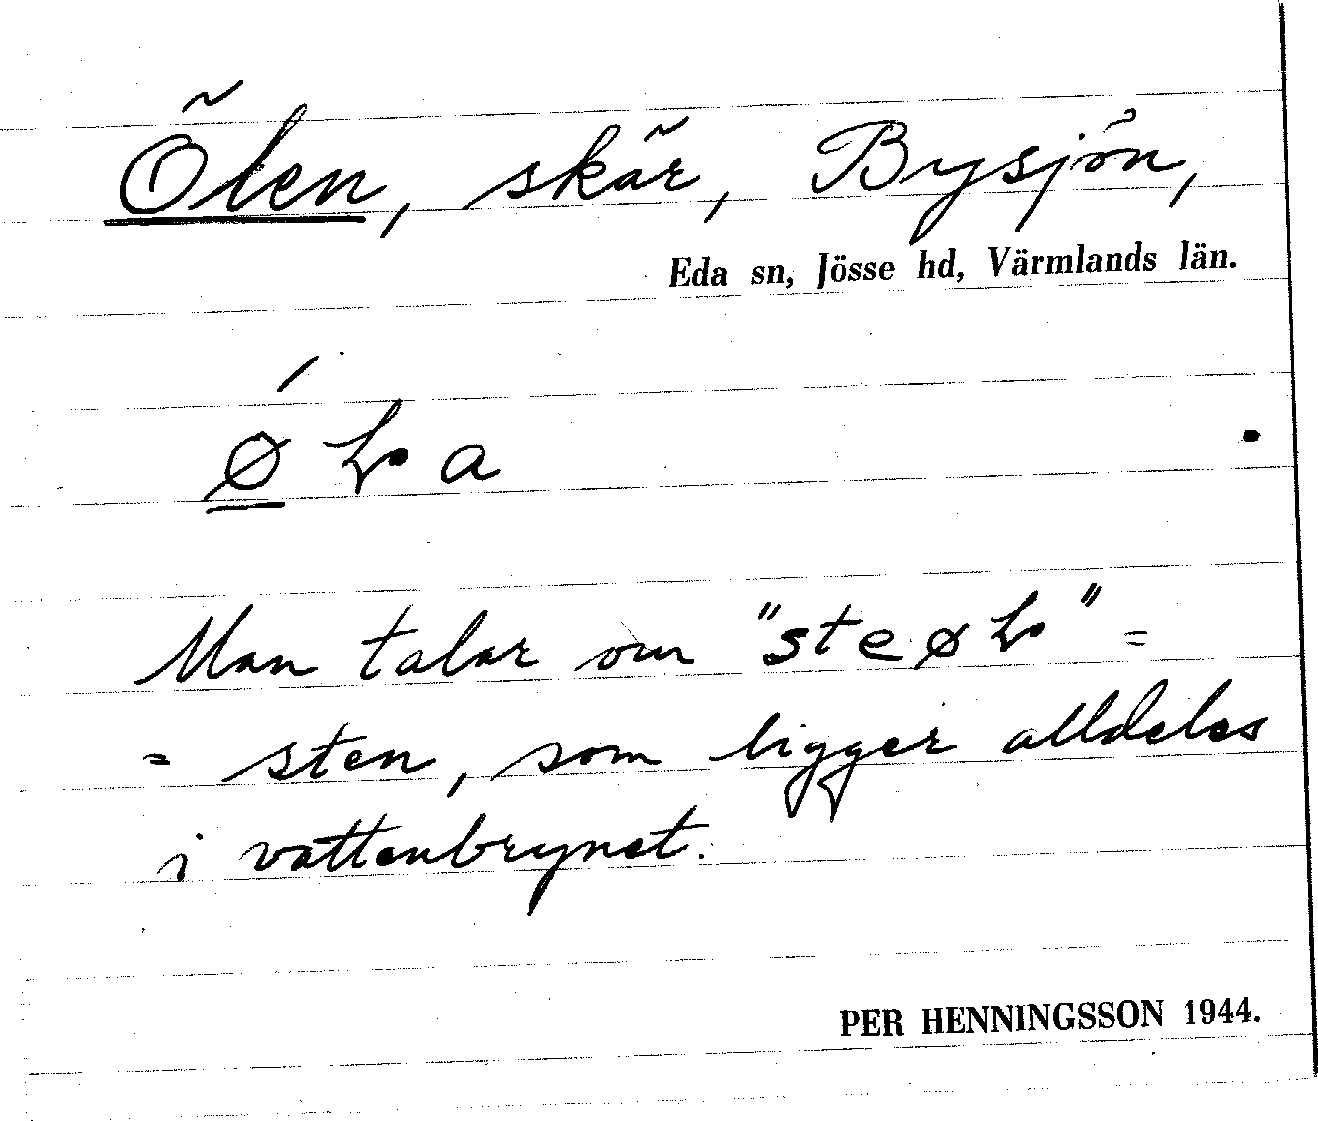 Ölen, skär, Bysjön,
Eda sn, Jösse hd, Värmlands län.
Man talar om
= sten, som ligger alldeles
i vattenbrynet.
PER HENNINGSSON 1944.